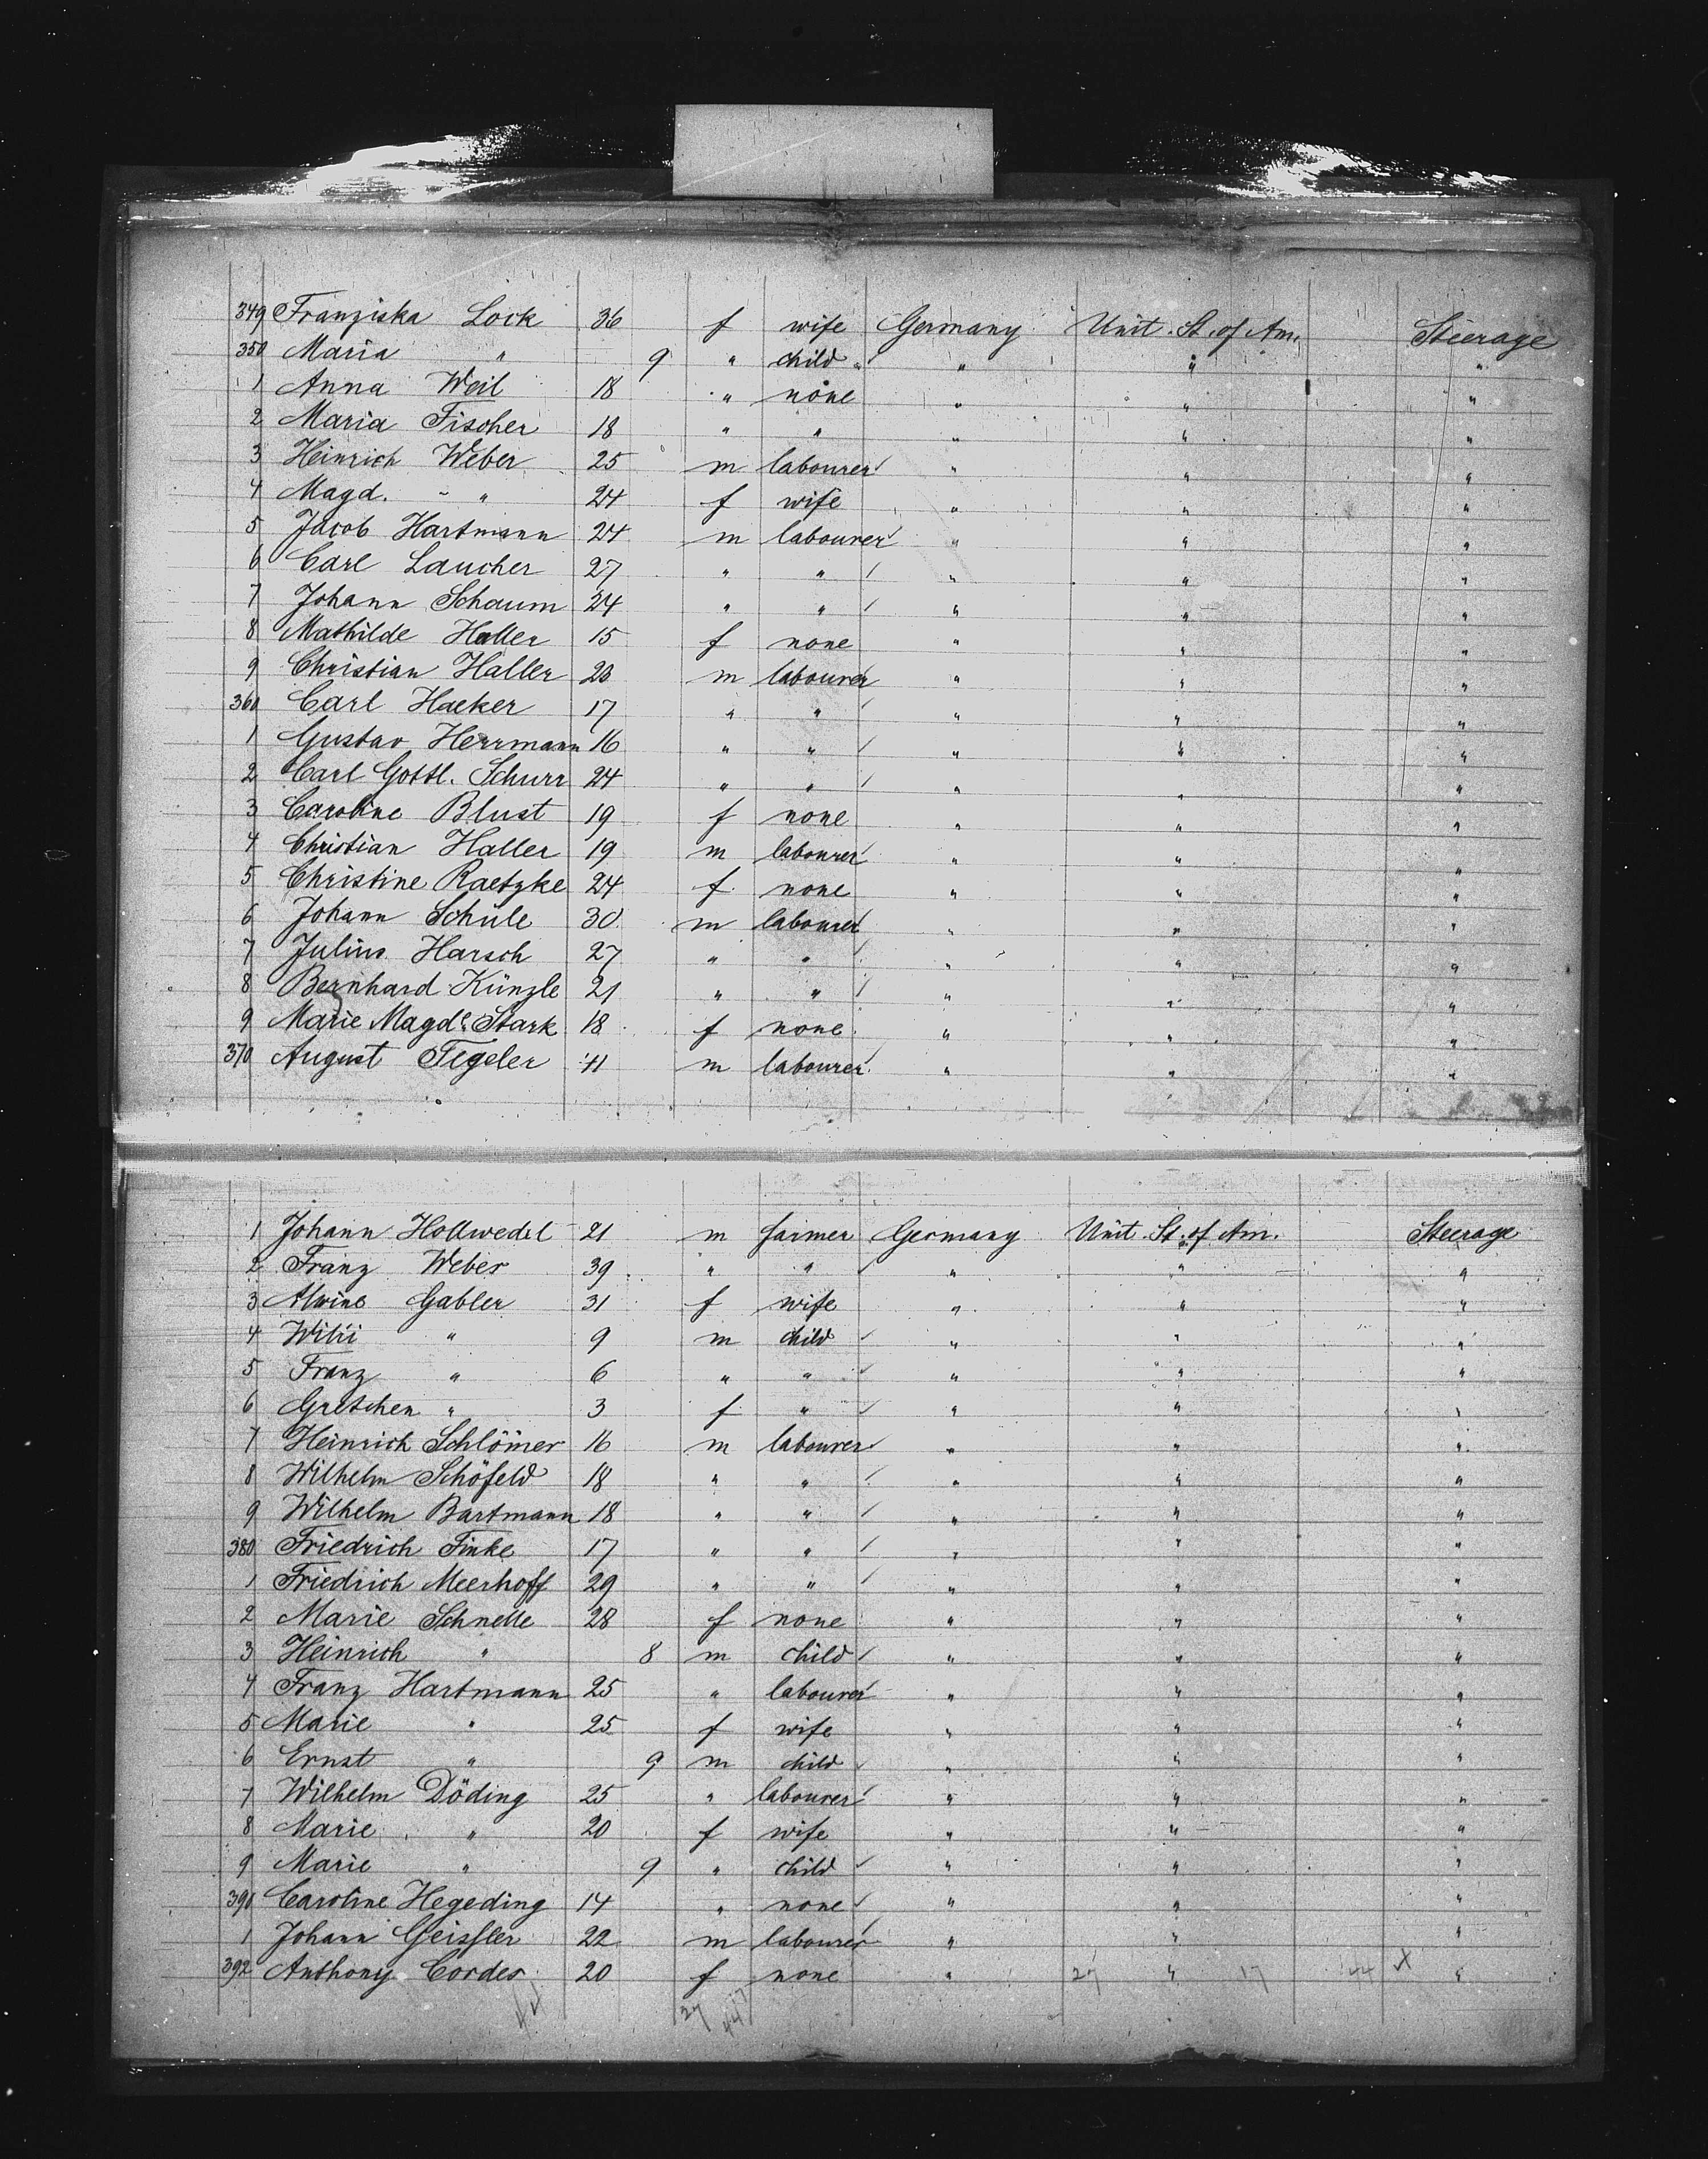 349 Franziska Lock 36 f wife Germany Unit. St. of Am. Steerage
350 Maria " 9 " child " " " "
1 Anna Weil 18 " none " " "
2 Maria Fischer 18 " " " " "
3 Heinrich Weber 25 m labourer " " "
4 Magd. " 24 f wife " " "
5 Jacob Hartmann 24 m labourer " " "
6 Carl Laucher 27 " " " " "
7 Johann Schaum 24 " " " " "
8 Mathilde Haller 15 f none " " "
9 Christian Haller 20 m labourer " " "
360 Carl Hacker 17 " " " " "
1 Gustav Herrmann 16 " " " " "
2 Carl Gottl. Schurr 24 " " " " "
3 Caroline Blust 19 f none " " "
4 Christian Haller 19 m labourer " " "
5 Christine Raetzke 24 f none " " "
6 Johann Schüle 30 m labourer " " "
7 Julius Harsch 27 " " " " "
8 Bernhard Künzle 21 " " " " "
9 Marie Magde. Stark 18 f none " " "
370 August Tegeler 41 m labourer " " "
1 Johann Hollwedel 21 m farmer Germany Unit. St. of Am. Steerage
2 Franz Weber 39 " " " " "
3 Alwine Gabler 31 f wife " " "
4 Willi " 9 m child " " "
5 Franz " 6 " " " " "
6 Gretchen " 3 f " " " "
7 Heinrich Schlömer 16 m labourer " " "
8 Wilhelm Schöfeld 18 " " " " "
9 Wilhelm Bartmann 18 " " " " "
380 Friedrich Finke 17 " " " " "
1 Friedrich Meerhoff 29 " " " " "
2 Marie Schnelle 28 f none " " "
3 Heinrich " 8 m child " " "
4 Franz Hartmann 25 " labourer " " "
5 Marie " 25 f wife " " "
6 Ernst " 9 m child " " "
7 Wilhelm Döding 25 " labourer " " "
8 Marie " 20 f wife " " "
9 Marie " 9 " child " " "
390 Caroline Hegeding 14 " none " " "
1 Johann Geissler 22 m labourer " " "
392 Anthony Cordes 20 f none " 27 " 17 44 X "
44 27 17
44